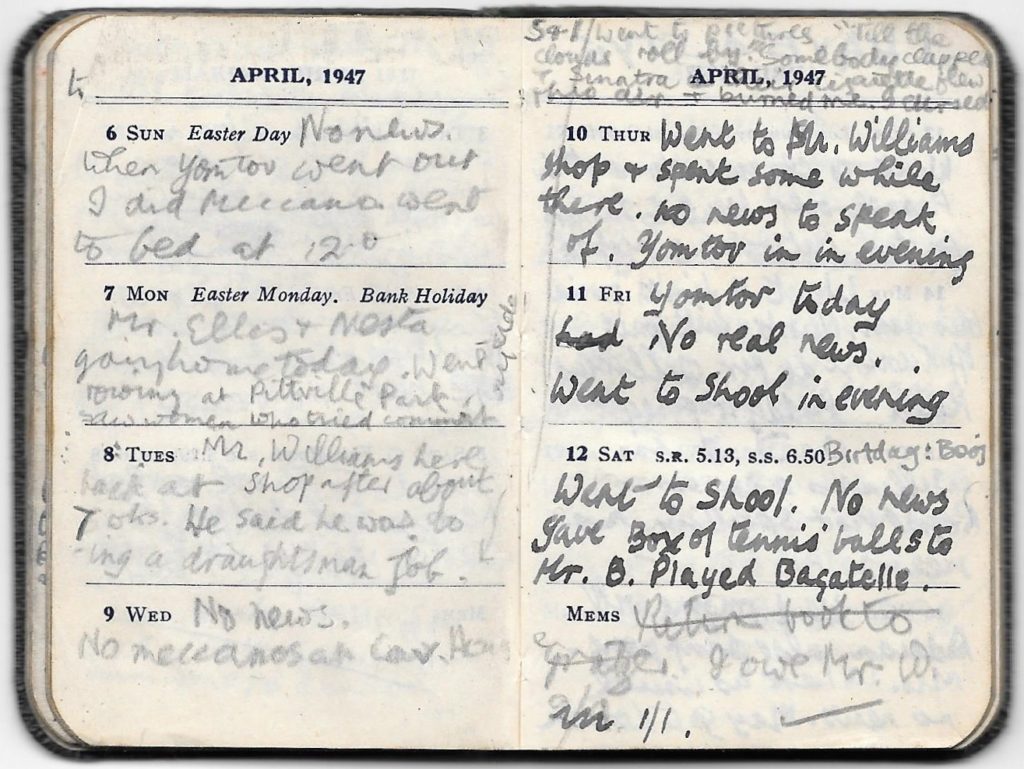 APRIL, 1947
6 SUN Easter Day No news.
When Yomtov went out
I did Meccano went
to bed at 12.0
7 MON Easter Monday. Bank Holiday
Mr. Elles + Nesta
going home today. Went
rowing at Pittville Park.
saw women who tried commit
suicide
8 TUES Mr. Williams here
back at shop after about
7 wks. He said he was do
ing a draughtsman job.
9 WED No news.
No meccanos at Cav. House
Sat/Went to pictures "Till the
clouds roll by". Somebody clapped
Sinatra
the air + burned me. I cursed
APRIL, 1947
10 THUR Went to Mr. Williams
shop + spent some while
there. no news to speak
of. Yomtov in in evening
11 FRI Yomtov today
had No real news.
Went to Shool in evening
12 SAT S.R. 5.13, S.S. 6.50 Birtday: Boojs
Went to Shool. No news
gave Box of tennis balls to
Mr. B. Played Bagatelle.
MEMS Return book to
I owe Mr. W.
1/1.